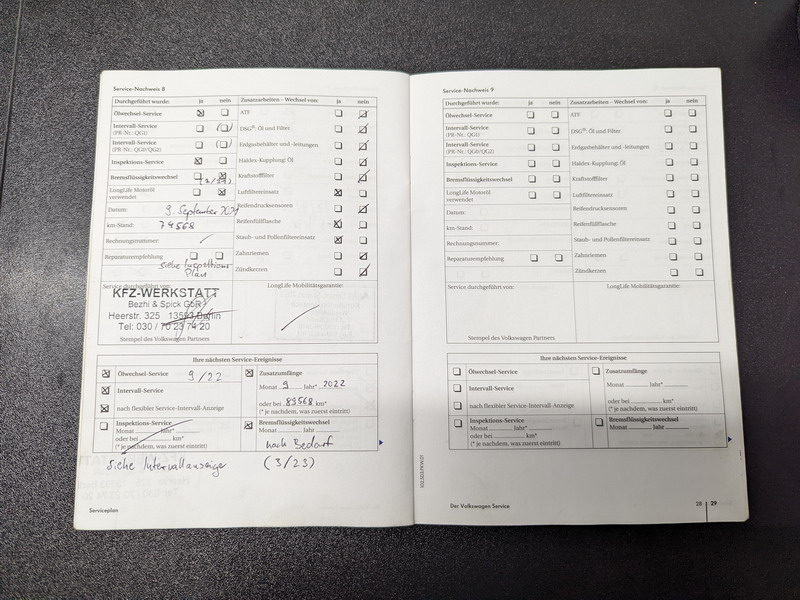 Service-Nachweis 8
Durchgeführt wurde: ja nein Zusatzarbeiten – Wechsel von: ja nein
Ölwechsel-Service ATF
Intervall-Service
(PR-Nr.: QG1) DSG®: Öl und Filter
Intervall-Service
(PR-Nr.: QG0/QG2) Erdgasbehälter und -leitungen
Inspektions-Service Haldex-Kupplung: Öl
Bremsflüssigkeitswechsel Kraftstofffilter
(3/23)
LongLife Motoröl
verwendet Luftfiltereinsatz
Datum: 9. September 2021 Reifendrucksensoren
km-Stand: 74568 Reifenfüllflasche
Rechnungsnummer: Staub- und Pollenfiltereinsatz
Reparaturempfehlung Zahnriemen
siehe Inspektions
Plan Zündkerzen
Service durchgeführt von: LongLife Mobilitätsgarantie:
KFZ-WERKSTATT
Bezhi & Spick GbR
Heerstr. 325 13593 Berlin
Tel: 030 / 70 23 74 20
Stempel des Volkswagen Partners
Ihre nächsten Service-Ereignisse
Ölwechsel-Service 9/22 Zusatzumfänge
Intervall-Service Monat 9 Jahr* 2022
nach flexibler Service-Intervall-Anzeige oder bei 89568 km*
(* je nachdem, was zuerst eintritt)
Inspektions-Service Bremsflüssigkeitswechsel
Monat Jahr* Monat Jahr
oder bei km*
(* je nachdem, was zuerst eintritt) nach Bedarf
siehe Intervallanzeiger (3/23)
Serviceplan
Service-Nachweis 9
Durchgeführt wurde: ja nein Zusatzarbeiten – Wechsel von: ja nein
Ölwechsel-Service ATF
Intervall-Service
(PR-Nr.: QG1) DSG®: Öl und Filter
Intervall-Service
(PR-Nr.: QG0/QG2) Erdgasbehälter und -leitungen
Inspektions-Service Haldex-Kupplung: Öl
Bremsflüssigkeitswechsel Kraftstofffilter
LongLife Motoröl
verwendet Luftfiltereinsatz
Datum: Reifendrucksensoren
km-Stand: Reifenfüllflasche
Rechnungsnummer: Staub- und Pollenfiltereinsatz
Reparaturempfehlung Zahnriemen
Zündkerzen
Service durchgeführt von: LongLife Mobilitätsgarantie:
Stempel des Volkswagen Partners
Ihre nächsten Service-Ereignisse
Ölwechsel-Service Zusatzumfänge
Intervall-Service Monat Jahr*
nach flexibler Service-Intervall-Anzeige oder bei km*
(* je nachdem, was zuerst eintritt)
Inspektions-Service Bremsflüssigkeitswechsel
Monat Jahr* Monat Jahr
oder bei km*
(* je nachdem, was zuerst eintritt)
Der Volkswagen Service 28 29